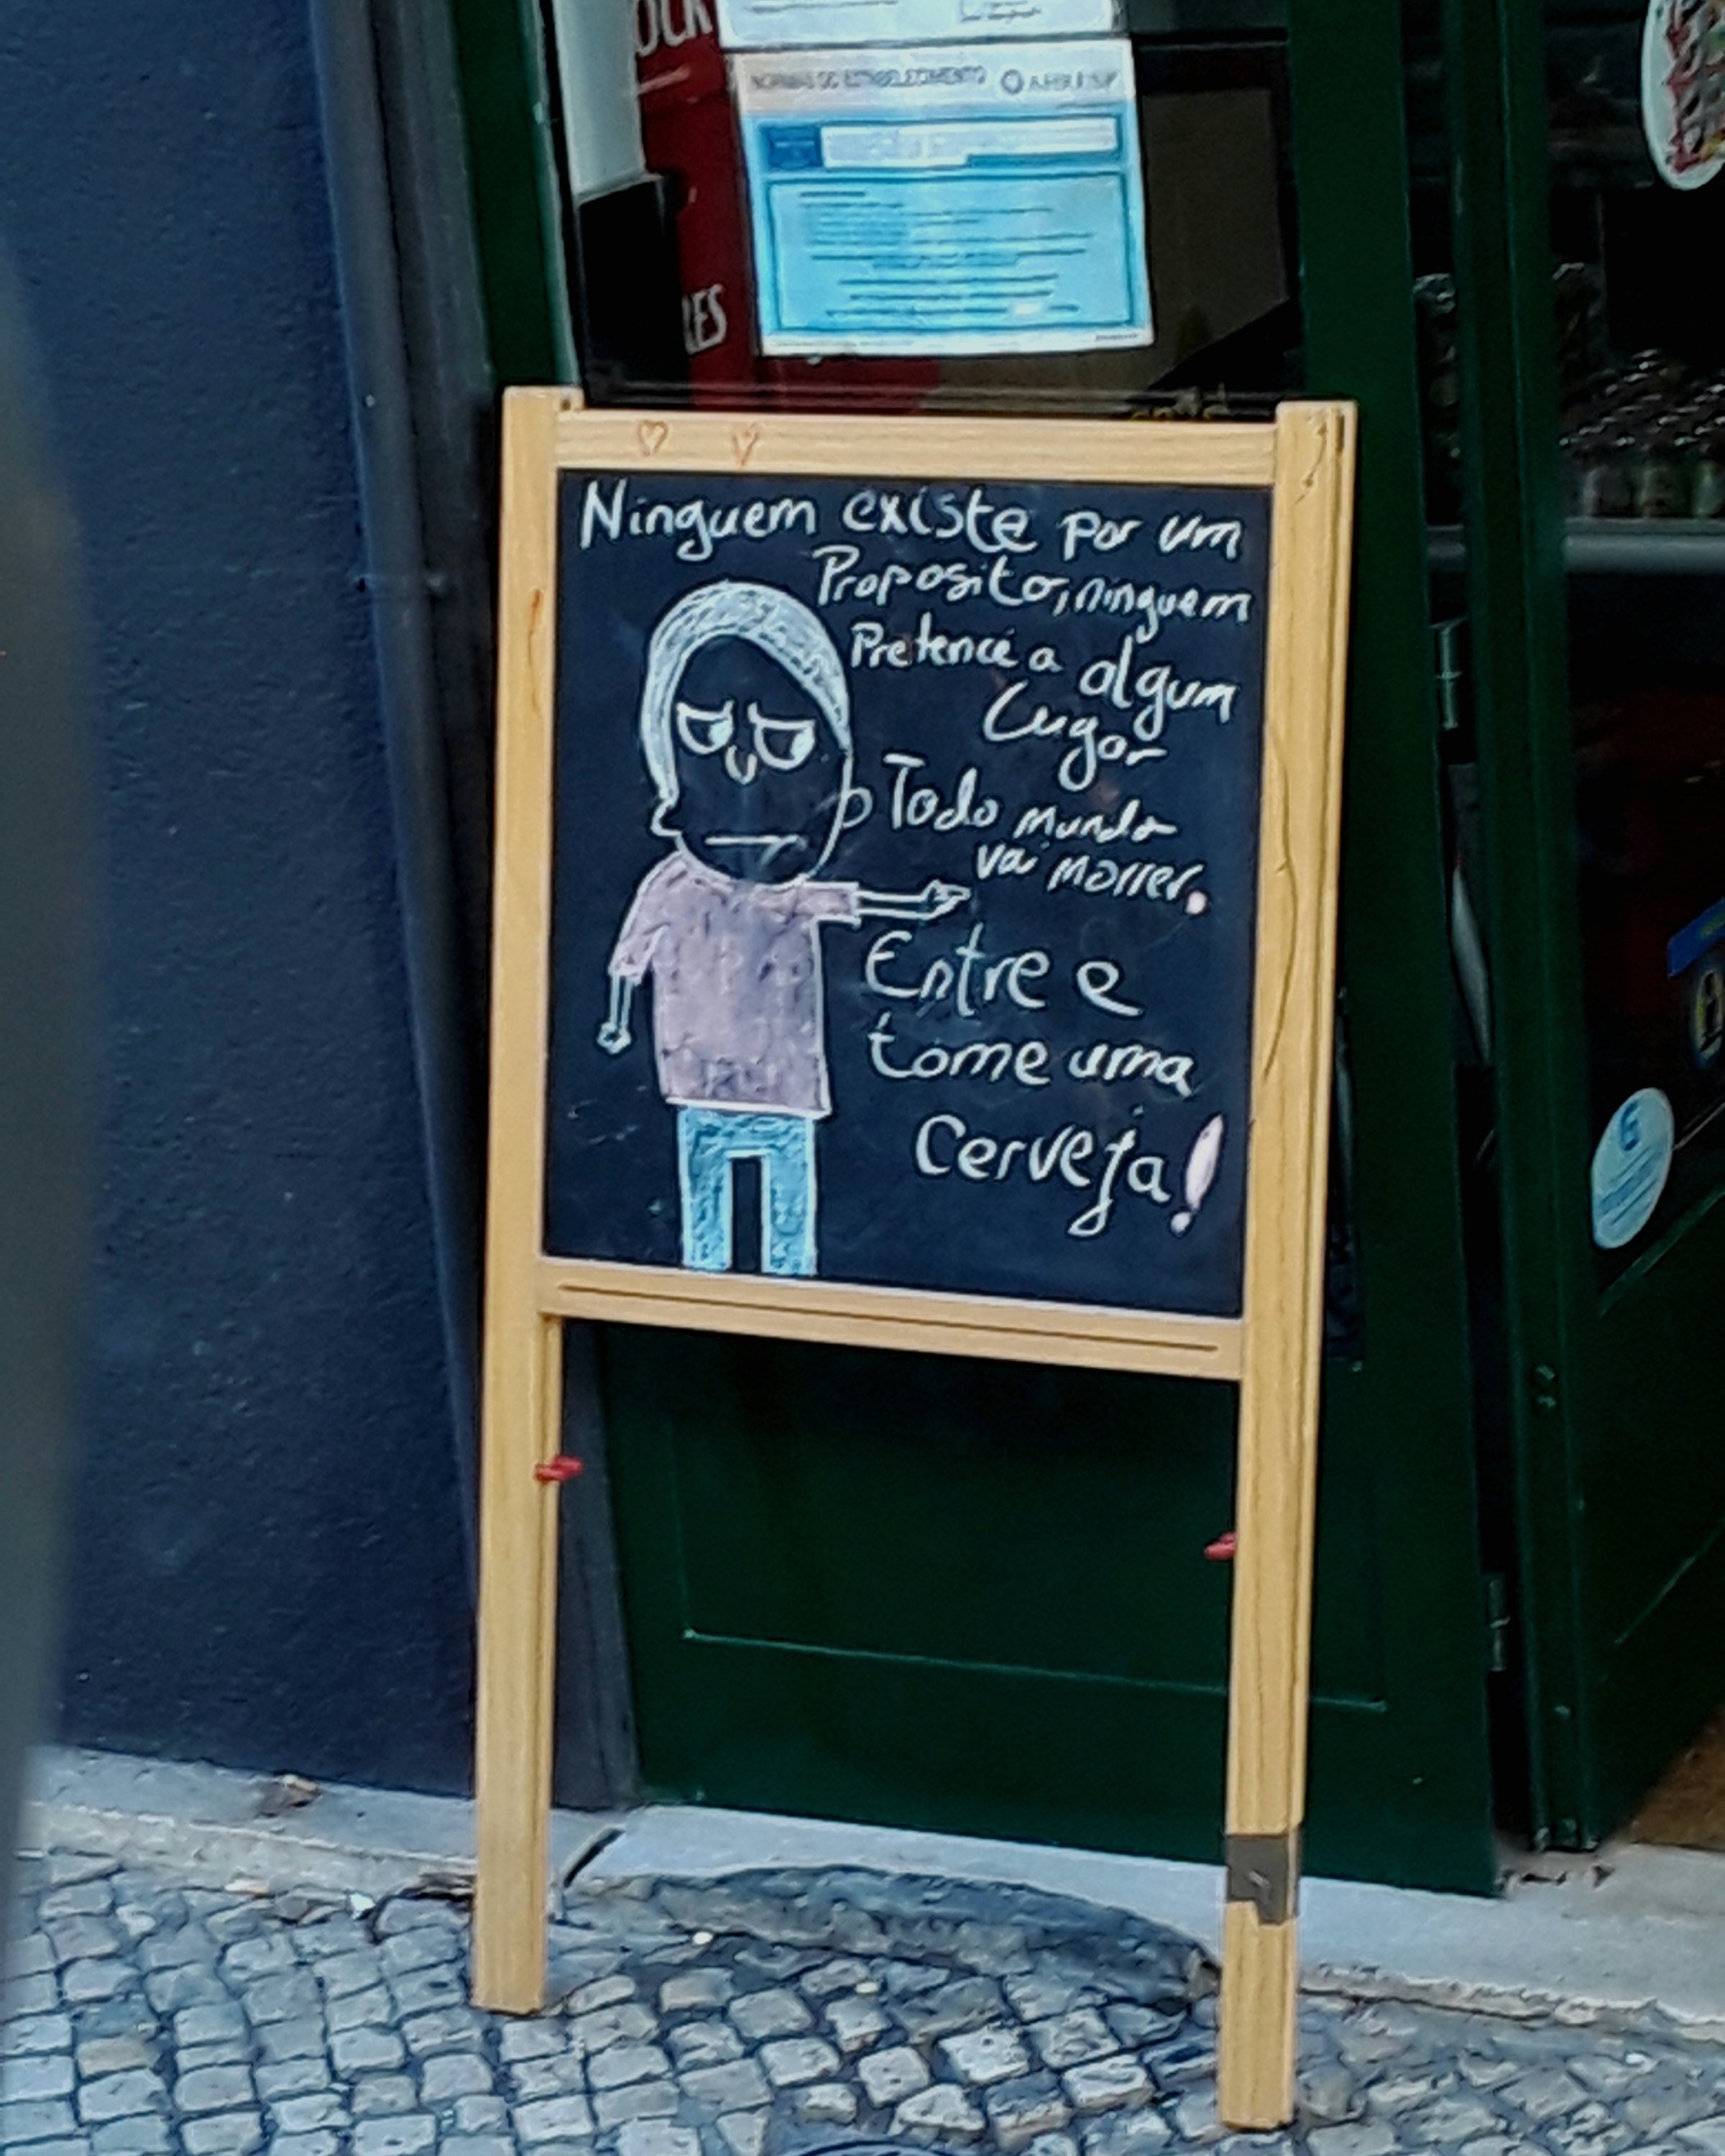 OCK
NORMAS DO ESTABELECIMENTO
RES
Ninguem existe por um
Proposito, ninguem
Pretence a algum
Lugar
Todo mundo
vai morrer.
Entre e
tome uma
Cerveja!